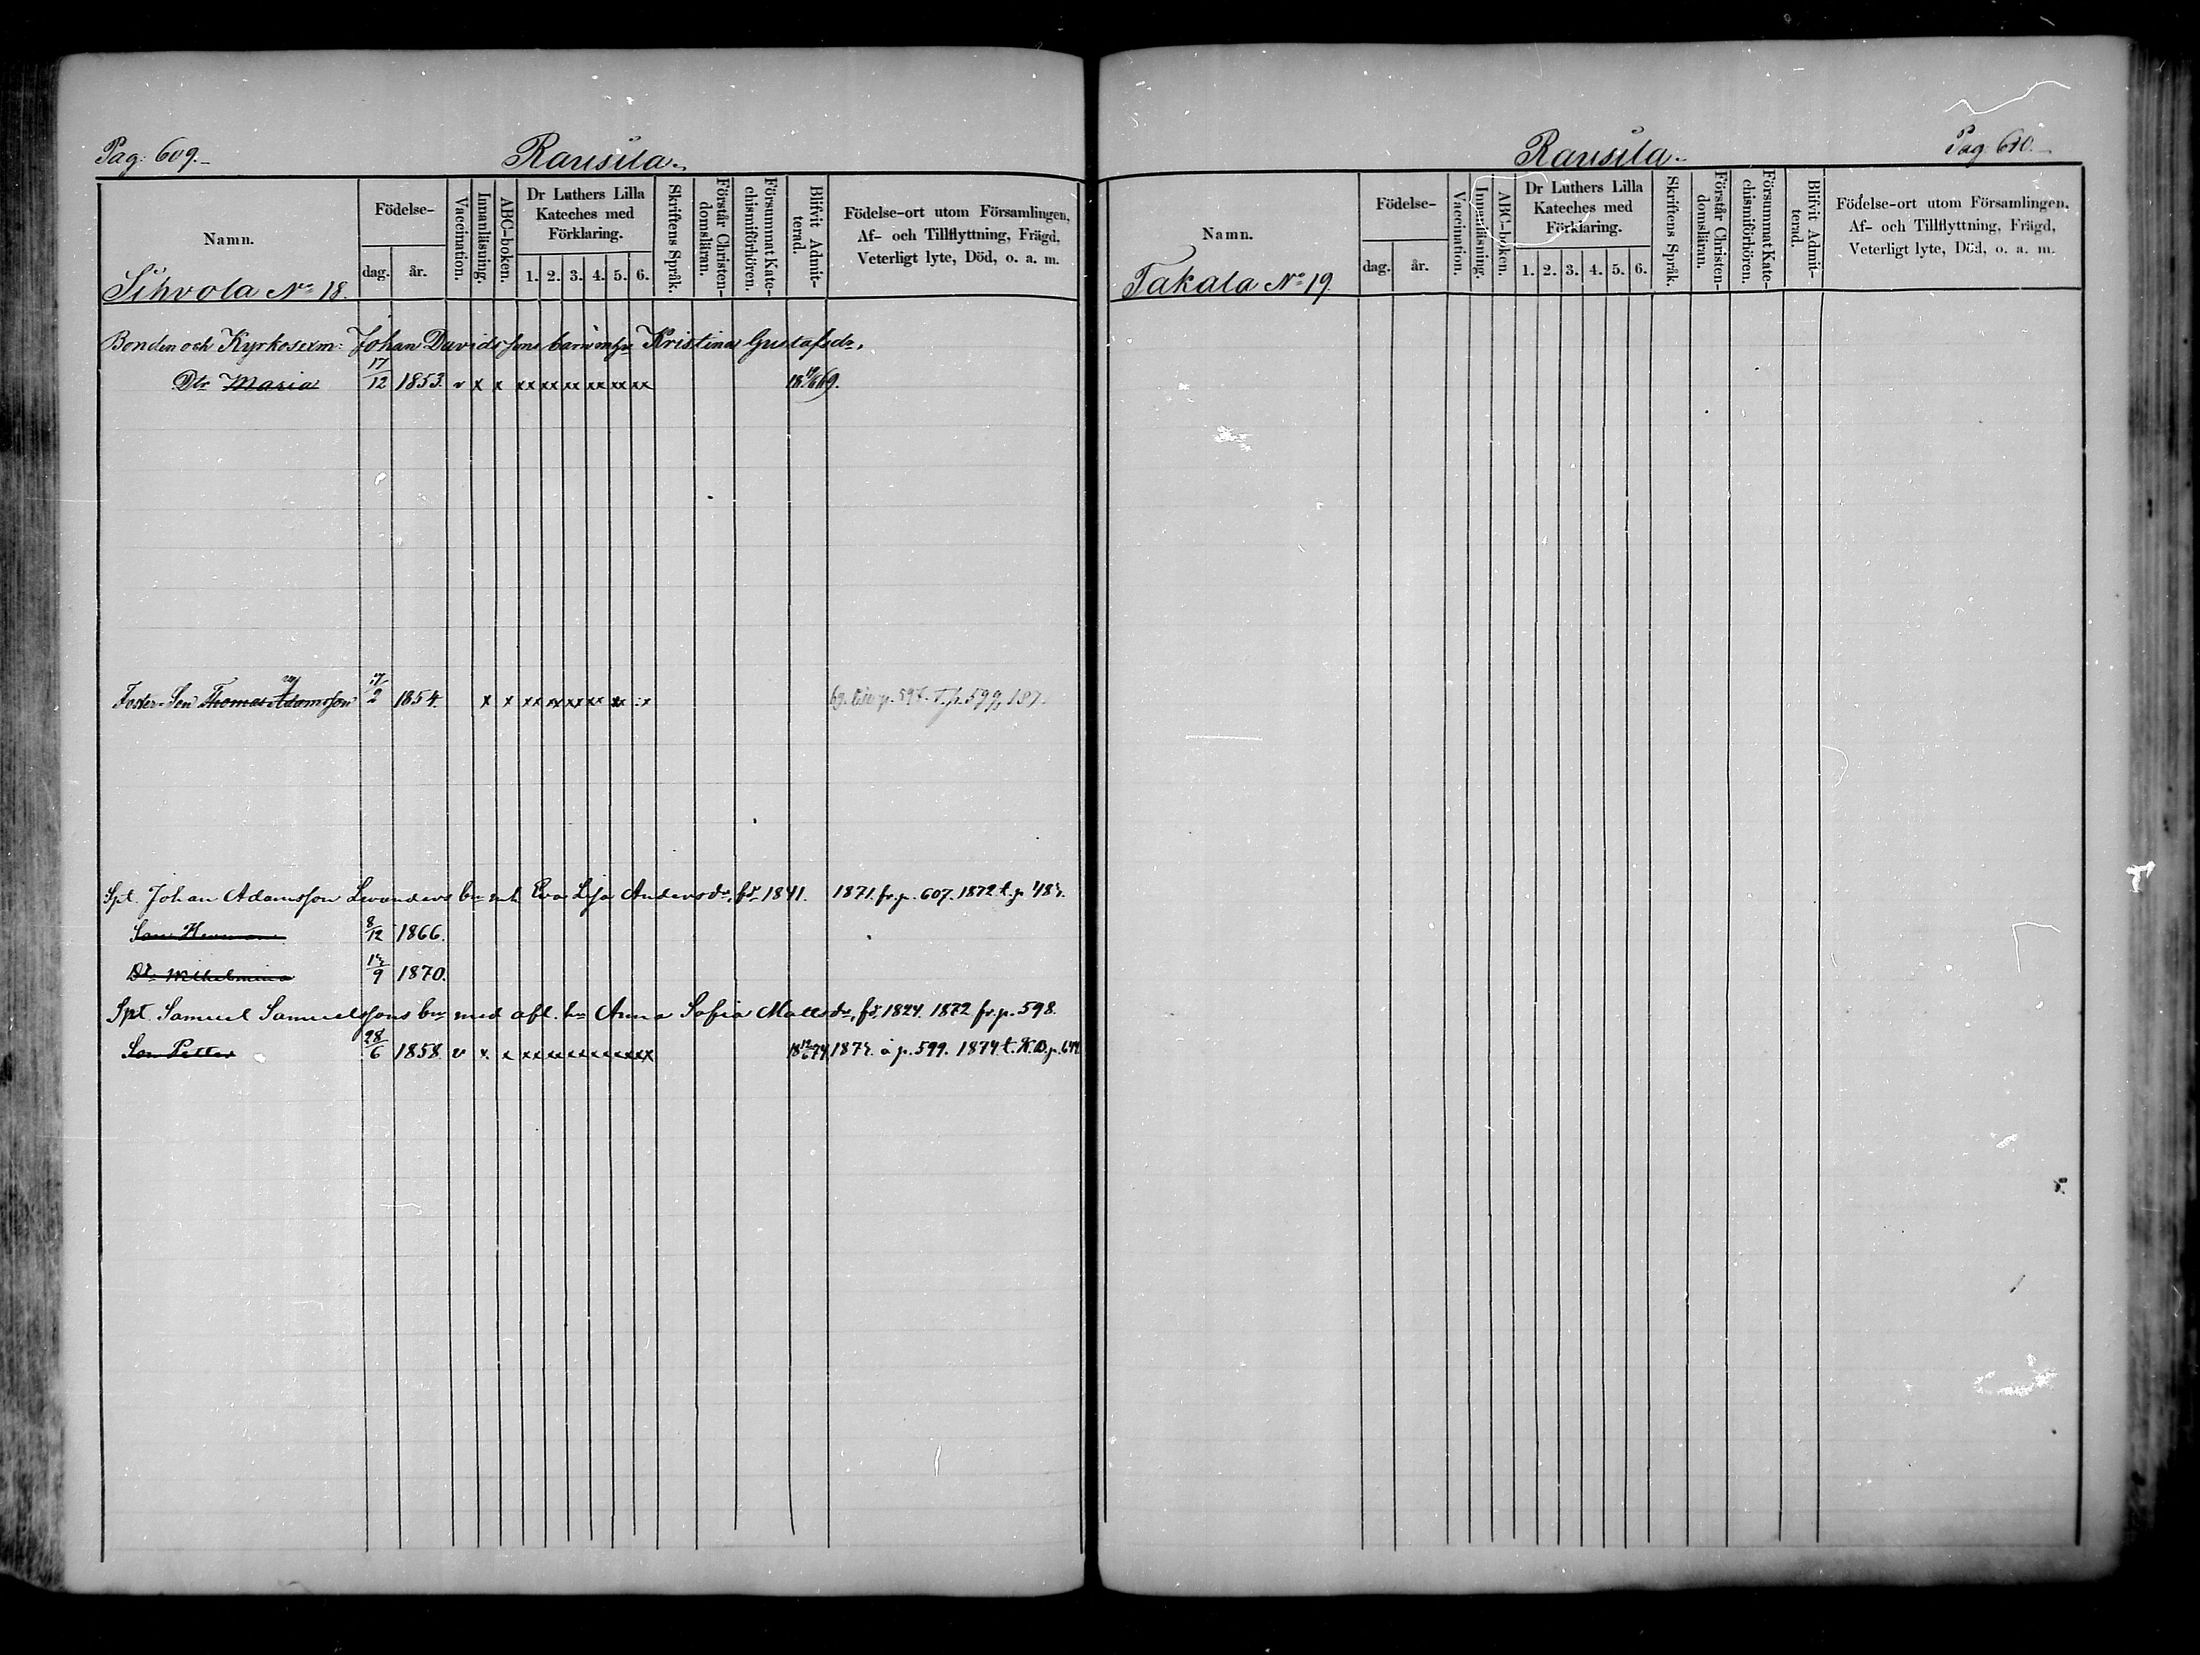 Pag: 609.
Rausila.
Namn.
Födelse-
dag.
år.
Vaccination.
Innanläsning.
ABC-boken.
Dr Luthers Lilla
Kateches med
Förklaring.
1. 2. 3. 4. 5. 6.
Skriftens Språk.
Förstår Christen-
domsläran.
Försummat Kate-
chismiförhören.
Blifvit Admit-
terad.
Födelse-ort utom Församlingen,
Af- och Tillflyttning, Frägd,
Veterligt lyte, Död, o. a. m.
Sihvola No 18.
Bonden och Kyrkosexm: Johan Davidssons barn m hu Kristina Gustafsdr.
Dtr Maria 17/12 1853. v x x xx xx xx xx xx xx
Foster-Son Thomas Adamsson 17/2 1854. x x xx xx xx xx xx
Spt. Johan Adamsson Levanders bn m h Eva Lisa Andersdr. fd 1841. 1871. fr. p. 607. 1872 t. p.
Son Herman 8/12 1866.
Dr Wilhelmina 9 1870.
Spt. Samuel Samuelssons bn med afl. hu Anna Sofia Mattsdr, fd. 1824. 1872 fr. p. 598.
Son Petter 28/6 1858. v x. x xx xx xx xx xx xx å p. 599. 1874 t. K.B. p.
Pag: 610.
Rausila.
Namn.
Födelse-
dag.
år.
Vaccination.
Innanläsning.
ABC-boken.
Dr Luthers Lilla
Kateches med
Förklaring.
1. 2. 3. 4. 5. 6.
Skriftens Språk.
Förstår Christen-
domsläran.
Försummat Kate-
chismiförhören.
Blifvit Admit-
terad.
Födelse-ort utom Församlingen,
Af- och Tillflyttning, Frägd,
Veterligt lyte, Död, o. a. m.
Takala No 19